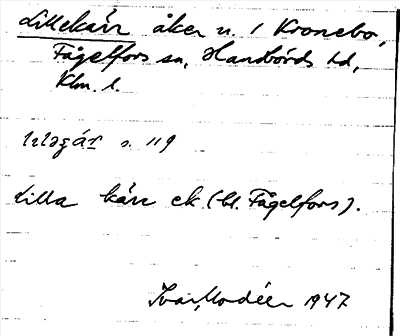 Lillekärr åker n. 1 Kronebo,
Fågelfors sn, Handbörds hd,
Klm. l.
s. 119
Lilla kärr ek (bl. Fågelfors).
Ivar Modéer 1947